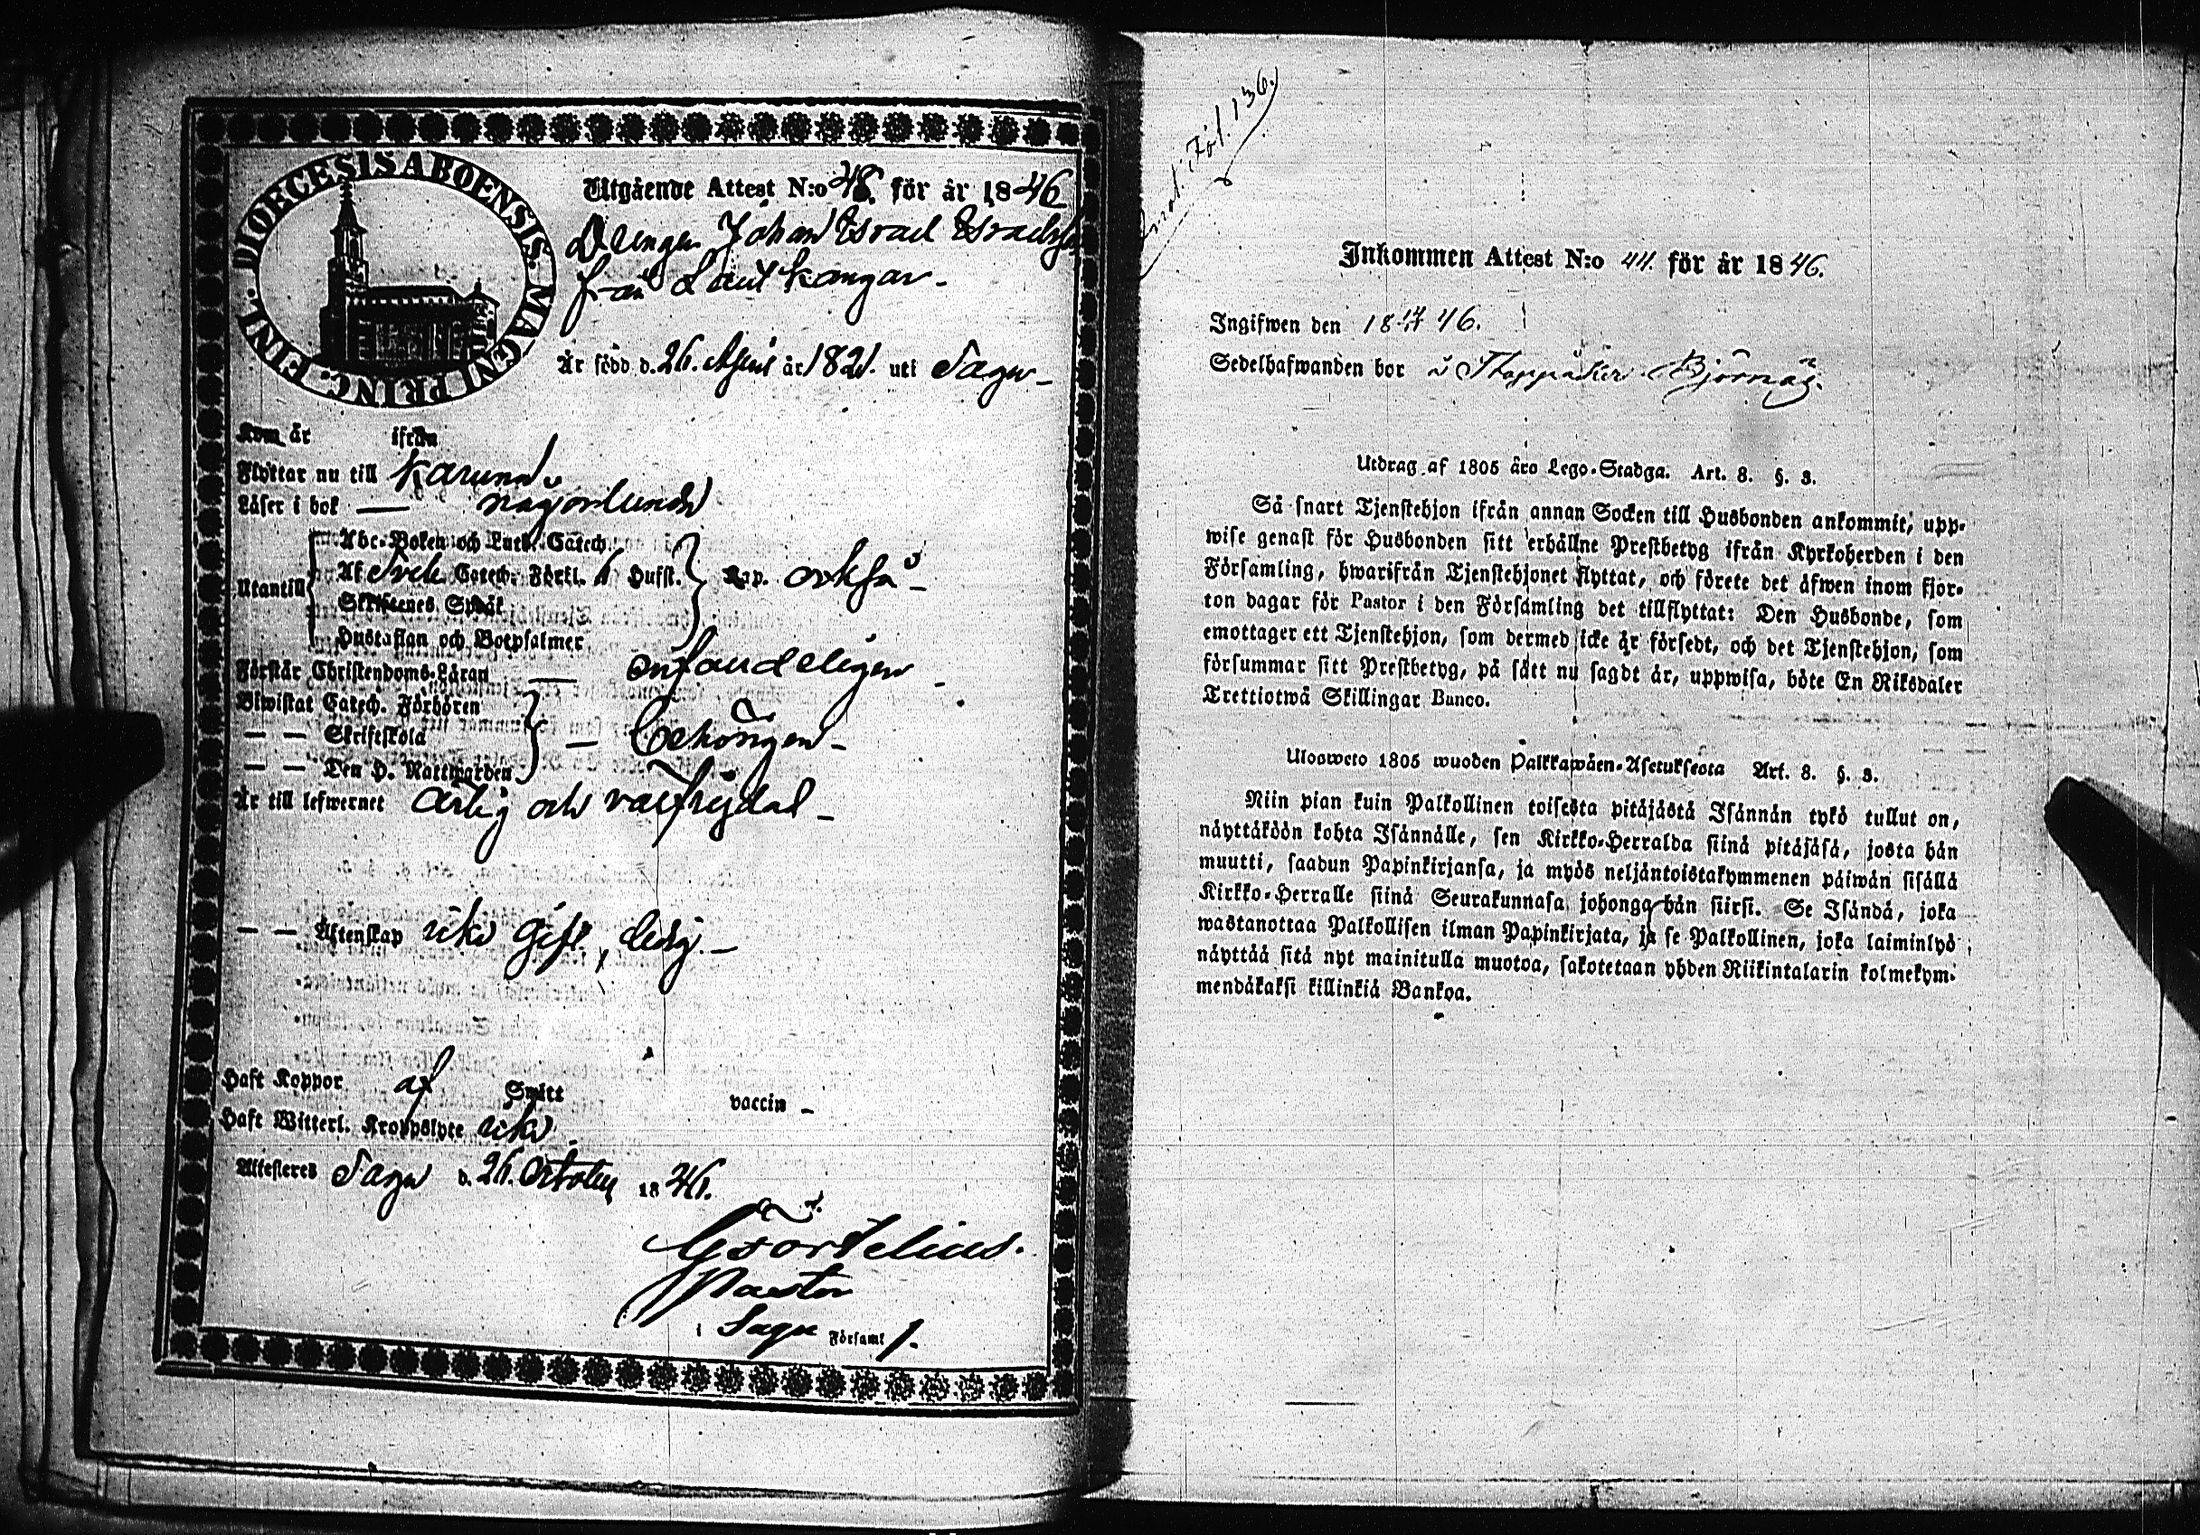 DIOECESIS ABOENSIS. MAGNI PRINC. FINL.
Utgående Attest N:o 48. för år 1846
Drengen Johan Israel Israelsson
från Lautkangar
Är född d. 26. år 1821. uti Sagu
Kom år ifrån
Flyttar nu till Karuna
Läser i bok — någorlunda
Abc-Boken och Luth. Catech.
Utantill Af Sveb. Catech. Förkl. 6 Hufst. Kap. också
Skriftenes Språk
Hustaflan och Botpsalmer
Förstår Christendoms-Läran — enfaldeligen
Biwistat Catech. Förhören
— — Skriftskola — behörigen
— — Den H. Nattwarden
Är till lefwernet ärlig och välfrejdad
— — Äktenskap icke gift, ledig.
Haft Koppor af Smitt vaccin
Haft Witterl. Kroppslyte icke
Attesteres Sagu d. 26. October 1846.
Pastor
i Sagu Församl
Fol 136.
Inkommen Attest N:o 44. för år 1846.
Ingifwen den 18 46.
Sedelhafwanden bor i Björnäs.
Utdrag af 1805 års Lego-Stadga. Art. 8. §. 3.
Så snart Tjenstehjon ifrån annan Socken till Husbonden ankommit, upp-
wise genast för Husbonden sitt erhållne Prestbetyg ifrån Kyrkoherden i den
Församling, hwarifrån Tjenstehjonet flyttat, och förete det äfwen inom fjor-
ton dagar för Pastor i den Församling det tillflyttat: Den Husbonde, som
emottager ett Tjenstehjon, som dermed icke är försedt, och det Tjenstehjon, som
försummar sitt Prestbetyg, på sätt nu sagdt är, uppwisa, böte En Riksdaler
Trettiotwå Skillingar Banco.
Ulosweto 1805 wuoden Palkkawäen-Asetuksesta Art. 8. §. 3.
Niin pian kuin Palkollinen toisesta pitäjästä Isännän tykö tullut on,
näyttäköön kohta Isännälle, sen Kirkko-Herralda siinä pitäjäsä, josta hän
muutti, saadun Papinkirjansa, ja myös neljäntoistakymmenen päiwän sisällä
Kirkko-Herralle siinä Seurakunnasa johonga hän siirsi. Se Isändä, joka
wastanottaa Palkollisen ilman Papinkirjata, ja se Palkollinen, joka laiminlyö
näyttää sitä nyt mainitulla muotoa, sakotetaan yhden Riikintalarin kolmekym-
mendäkaksi killinkiä Bankoa.